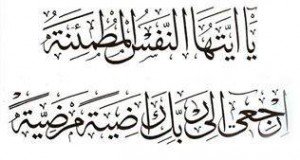 يَا أَيَّتُهَا النَّفْسُ الْمُطْمَئِنَّةُ
ارْجِعِي إِلَى رَبِّكِ رَاضِيَةً مَرْضِيَّةً